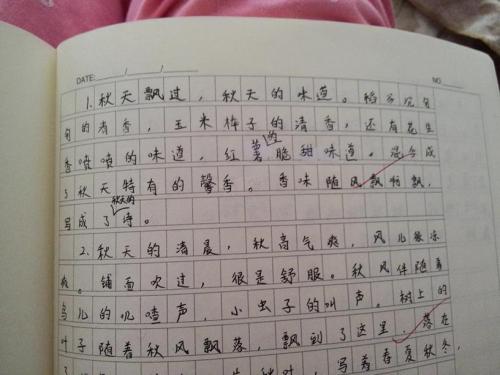 DATE: / / NO.
1. 秋天飘过，秋天的味道。稻子沉甸
甸的清香，玉米棒子的清香，还有花生
香喷喷的味道，红薯的脆甜味道。混合成
了秋天特有的馨香。香味随风飘啊飘，
写成了秋天的诗。
2. 秋天的清晨，秋高气爽，风儿
扑面吹过，很是舒服。秋风伴随着
鸟儿的叽喳声，小虫子的叫声。树上的
叶子随着秋风飘落，飘到了这里，落在
秋叶，写着春夏秋冬，